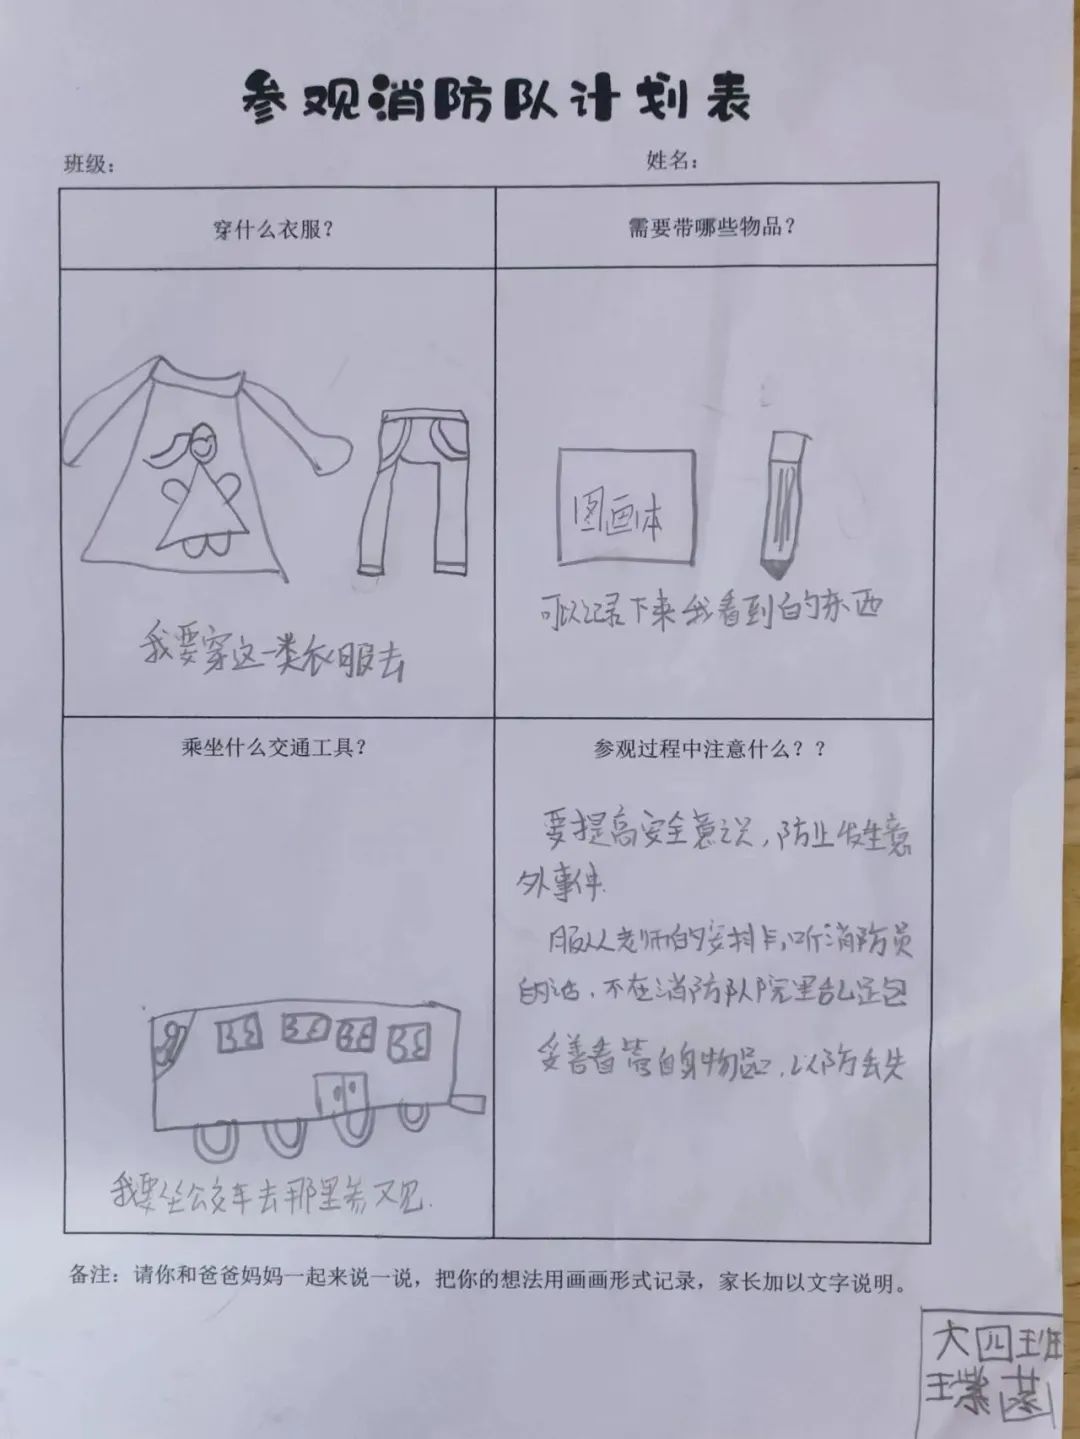 参观消防队计划表
班级： 姓名：
穿什么衣服？
需要带哪些物品？
图画本
我要穿这一类衣服去
可以记录下来我看到的东西
乘坐什么交通工具？
参观过程中注意什么？？
要提高安全意识，防止发生意
外事件.
服从老师的安排，听消防员
的话，不在消防队院里乱跑
妥善看管自身物品，以防丢失
我要坐公交车去那里参观.
备注：请你和爸爸妈妈一起来说一说，把你的想法用画画形式记录，家长加以文字说明。
大四班
王紫